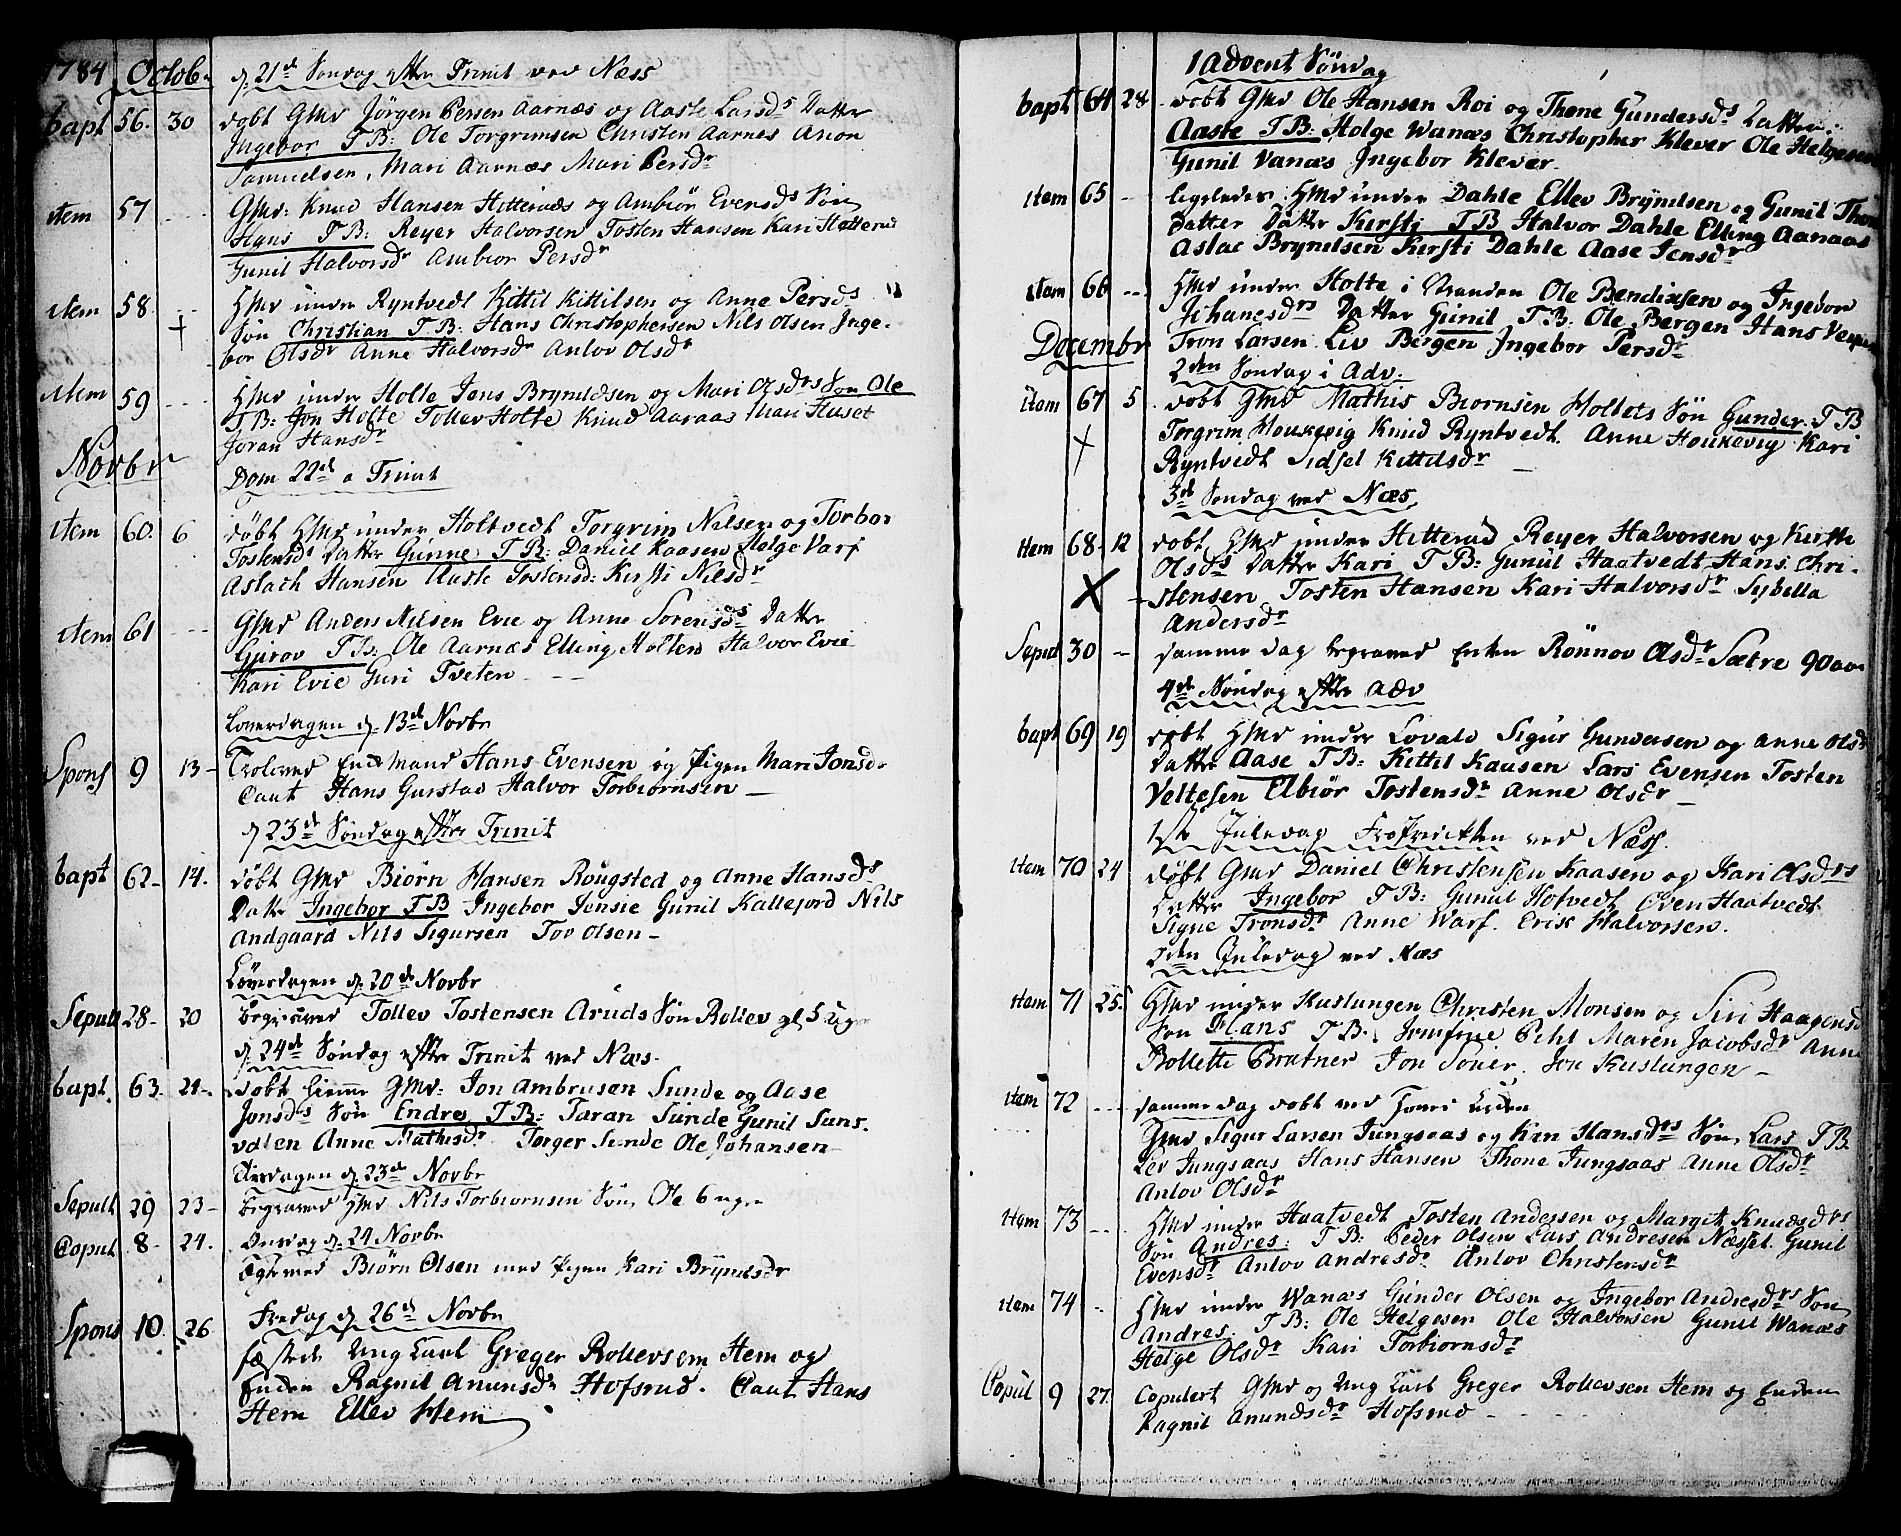 1784 Octob. d 21de Søndag efter Trinit ved Næss
bapt 56. 30 døbt GMd Jörgen Persen Aarnæs og Aaste Larsds Datter
Ingebor TB: Ole Torgrimsen Christen Aarnes Anon
Samuelsen, Mari Aarnæs Mari Persdr
Item 57 --- GMd: Knud Hansen Hitteruds og Ambiör Evensds Søn
Hans TB: Reyer Halvorsen Tosten Hansen Kari Hetterud
Gunil Halvorsdr Ambior Persdr
Item 58. --- HMd under Ryntvedt Kittil Kittilsen og Anne Persds
Søn Christian TB: Hans Christophersen Nils Olsen Inge-
bor Olsdr Anne Halvorsdr Anlov Olsdr
Item 59 --- HMd under Holte Jens Bryneldsen og Mari Olsdrs Søn Ole
TB: Jon Holte Tollev Holte Knud Aaraas Mari Huset
Joran Hansdr
Novbr
Dom 22de a Trinit
Item 60. 6 døbt HMd under Holtvedt Torgrim Nilsen og Torbor
Tostensds Datter Gunne TB: Daniel Kaasen Helge Varf
Aslach Hansen Aaste Tostensd: Kersti Nilsdr
Item 61 --- GMd Anders Nilsen Evie og Anne Sorensds Datter
Gurov TB: Ole Aarnæs Elling Holten Halvor Evie
Kari Evie Guri Tveten ---
Løverdagen d. 13de Novbr
Spons 9 13- Troloved Enkemand Hans Evensen og Pigen Mari Jonsdr
Caut Hans Gurstad Halvor Torbiornsen -
d 23de Søndag efter Trinit
bapt 62- 14. døbt GMd Biörn Hansen Rougsted og Anne Hansds
Datter Ingebor TB Ingebor Jensie Gunil Kallejord Nils
Andgaard Nils Sigursen Tov Olsen -
Løverdagen d. 20de Novbr
Sepult 28- 20 Begraved Tollev Tostensen Aruds Søn Rollev gl 5 Uger
d. 24de Søndag efter Trinit ved Næs.
bapt. 63. 21-. døbt hiemme GMd: Jon Ambrusen Sunde og Aase
Jonsds Søn Endres TB: Taran Sunde Gunil Suns-
valen Anne Mathisdr Torger Sunde Ole Johansen -
Tirsdagen d. 23de Novbr
Sepult 29 23- Begraved HMd Nils Torbiornsen Søn Ole 6 uger
Copul. 8- 24. Onsdag d. 24 Novbr
Egteviet Biörn Olsen med Pigen Kari Bryneldsdr
Fredag d. 26de Novbr
Spons 10. 26 fæstede Ung Karl Greger Rollevsen Hem og
Enken Ragnil Anunsdr Hofsrud. Caut Hans
Hem Ellev Hem
1 Advent Søndag
bapt 64 28. døbt GMd Ole Hansen Roi og Thone Gundersds Datter
Aaste TB: Helge Wanæs Christopher Klever Ole Helgesen
Gunil Vanæs Ingebor Klever.
Item 65 -- ligeledes HMd under Dahle Ellev Brynilsen og Gunil Thom
Datter Kersti TB Halvor Dahle Elling Aaraas
Aslac Brynilsen Kersti Dahle Aase Jensdr
Item 66 --- HMd under Holte i Stranden Ole Bendixsen og Ingebor
Johanesdrs Datter Gunil TB: Ole Bergen Hans
Tron Larsen Liv Bergen Ingebor Persdr
Decembr
2den Søndag i Adv.
Item 67 5. døbt GMd Mathis Biornsen Holtets Søn Gunder. TB
Torgrim Houkevig Knud Ryntvedt. Anne Houkevig Kari
Ryntvedt Sidsel Kittilsdr -
3de Søndag ved Næs
Item 68. 12 døbt HMd under Hitterud Reyer Halvorsen og Kirstie
Olsds Datter Kari TB: Gunil Haatvedt Hans Chri-
stensen Tosten Hansen Kari Halvorsdr Sybella
Andersdr
Sepul 30 -- samme dag begraved Enken Rönnov Olsdr Sætre 90 aar
4de Søndag efter Adv
bapt 69 19 døbt HMd under Lovald Sigur Gundersen og Anne Olsdr
Datter Aase TB: Kittil Kaasen Lars Evensen Tosten
Veltesen Elbiör Tostensdr Anne Olsdr -
1ste Juledag ved Næss.
Item 70 24 døbt GMd Daniel Christensen Kaasen og Kari Olsdrs
Datter Ingebor TB: Gunil Hotvedt Even Haatvedt
Signe Tronsdr Anne Warf. Erik Halvorsen.
2den Juledag ved Næs
Item 71 25. HMd under Kustungen Christen Monsen og Siri Haagensd
Søn Hans TB. Jomfrue Pehl Maren Jacobsdr Anne
Bollette Brutner Jon Soner. Jon Kustungen -
Item 72 --- samme dag døbt ved
GMd Sigur Larsen Jungsaas og Kari Hansdrs Søn Lars TB
Lev Jungsaas Hans Hansen Thone Jungsaas Anne Olsdr
Anlov Olsdr
Item 73 -- HMd under Haatvedt Tosten Andersen og Margit Knudsdrs
Søn Andres: TB: Peder Olsen Lars Andresen Næsset Gunil
Evensdr Anlov Andresdr Anlov Christensdr
Item 74 -- HMd under Wanæs Gunder Olsen og Ingebor Andresdrs Søn
Andres. TB: Ole Helgesen Ole Halvorsen Gunil Wanæs
Helge Olsdr Kari Torbiornsdr
Copul 9 27. Copulert GMd og Ung Karl Greger Rollevsen Hem og Enken
Ragnil Anundsdr Hofsrud ----